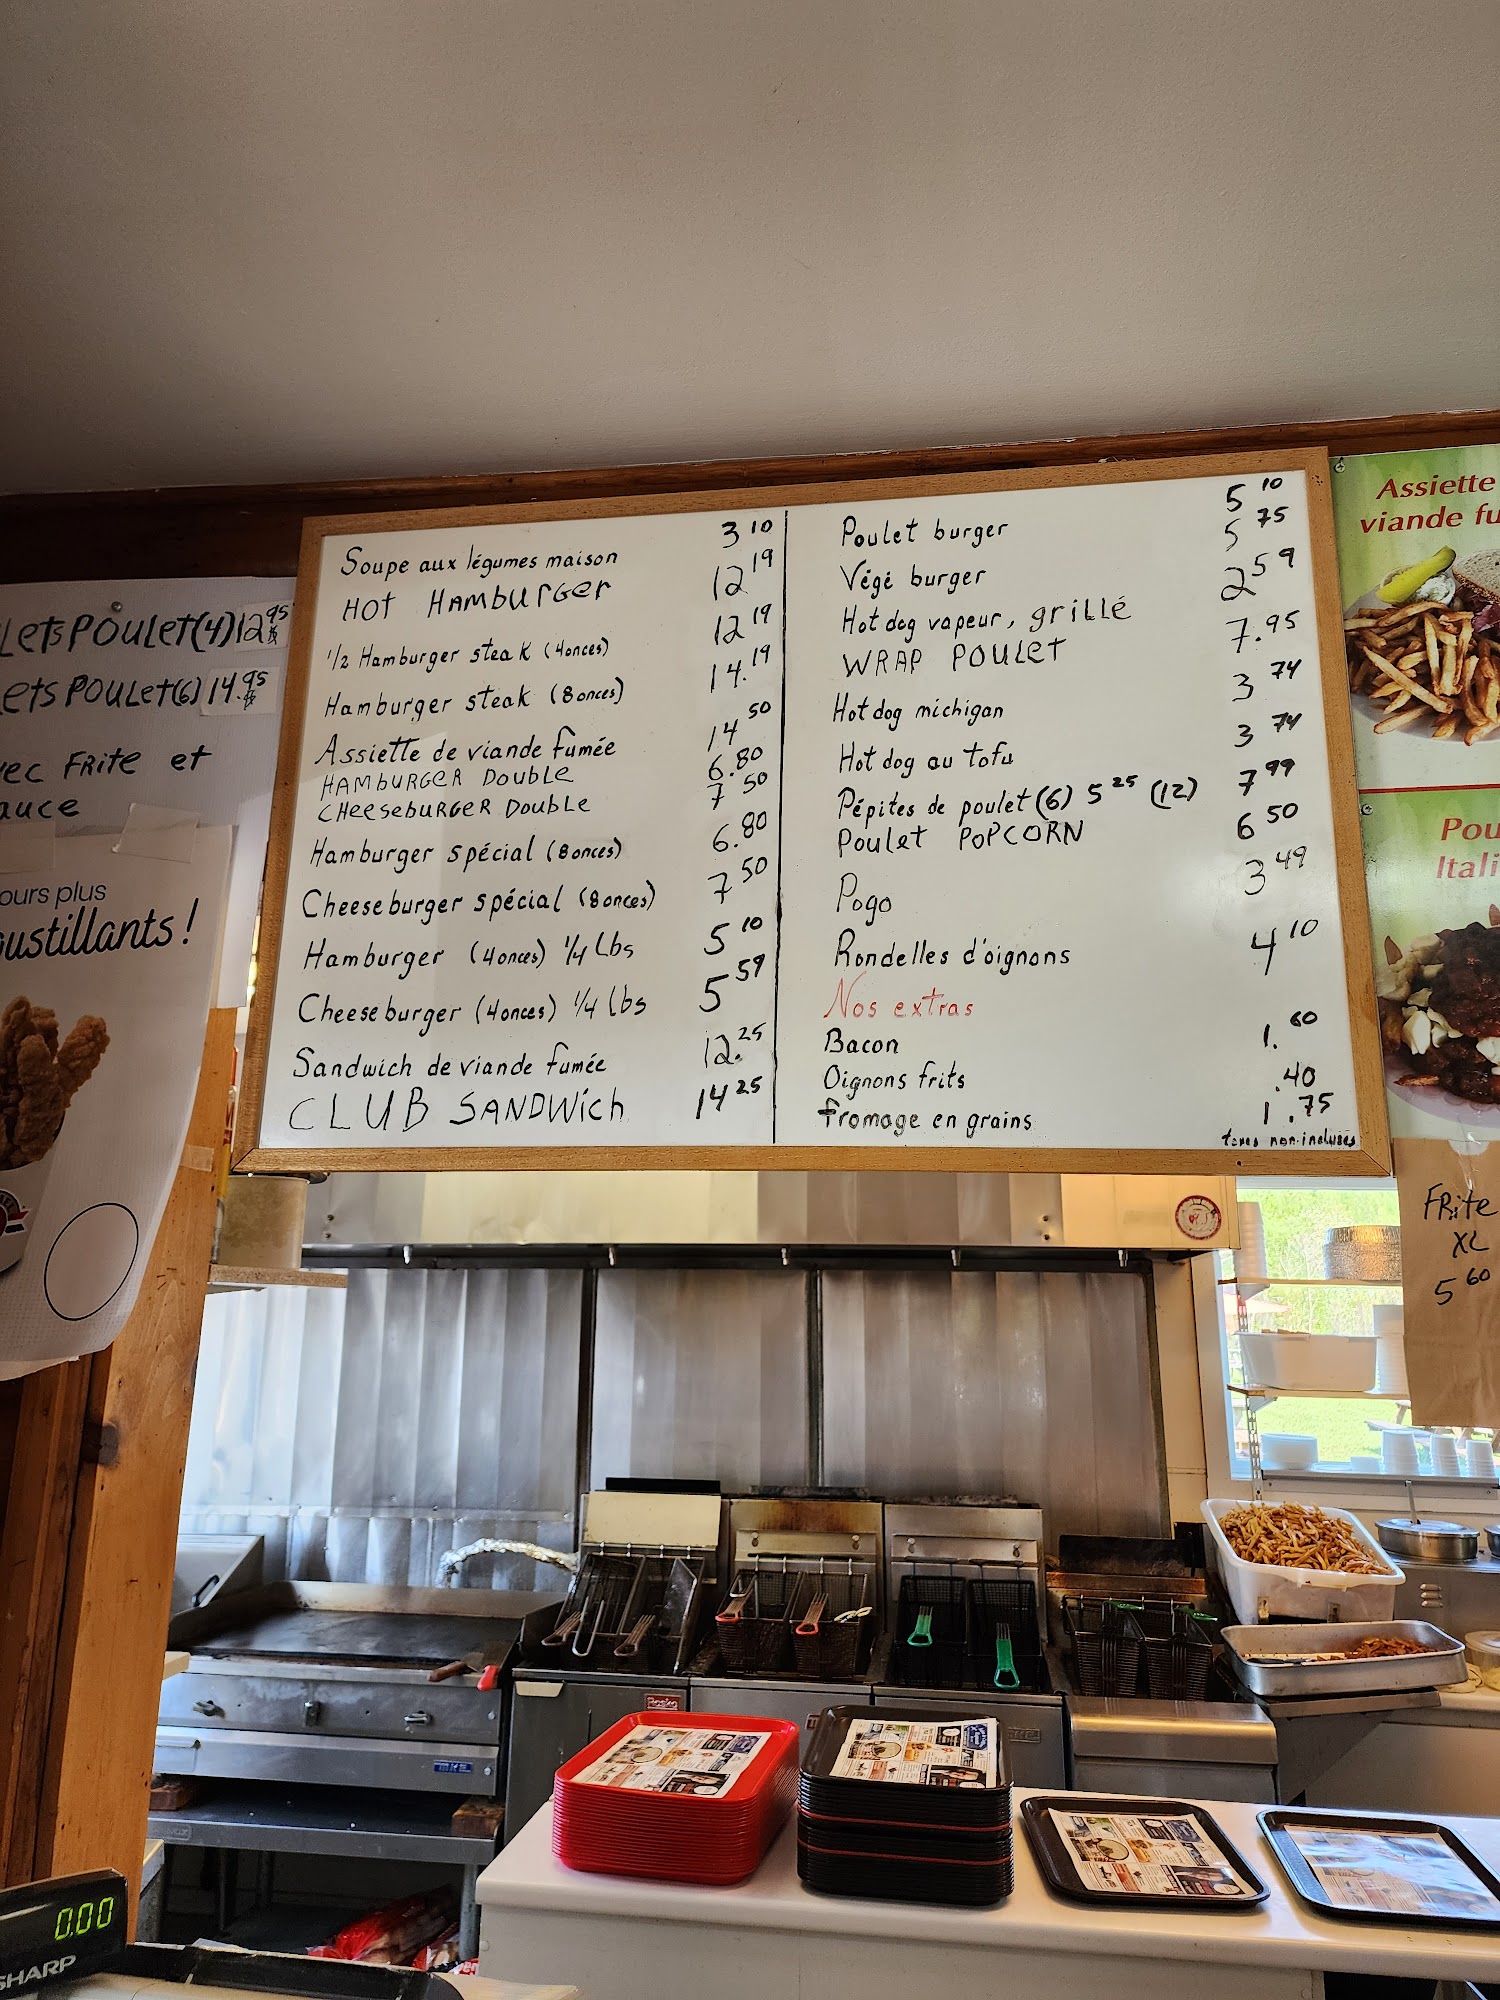 LetsPOULET(4)12.95$
etsPOULET(6)14.95$
FRite et
ours plus
Soupe aux légumes maison 3 10
HOT HAMBURGER 12 19
1/2 Hamburger steak (4onces) 12 19
Hamburger steak (8onces) 14.19
Assiette de viande fumée 14 50
HAMBURGER DOUBLE 6.80
CHEESEBURGER DOUBLE 7 50
Hamburger spécial (8onces) 6.80
Cheeseburger spécial (8onces) 7 50
Hamburger (4onces) 1/4 Lbs 5 10
Cheeseburger (4onces) 1/4 lbs 5 59
Sandwich de viande fumée 12.25
CLUB SANDWich 14 25
Poulet burger 5 10
Végé burger 5 75
Hot dog vapeur, gRiLLÉ 2 59
WRAP POULET 7.95
Hot dog michigan 3 74
Hot dog au tofu 3 74
Pépites de poulet (6) 5 25 (12) 7 99
POULET POPCORN 6 50
Pogo 3 49
Rondelles d'oignons 4 10
Nos extras
Bacon 1.60
Oignons frits .40
Fromage en grains 1.75
taxes non-incluses
Assiette
viande fu
Pou
Itali
FRite
XL
5 60
0.00
SHARP